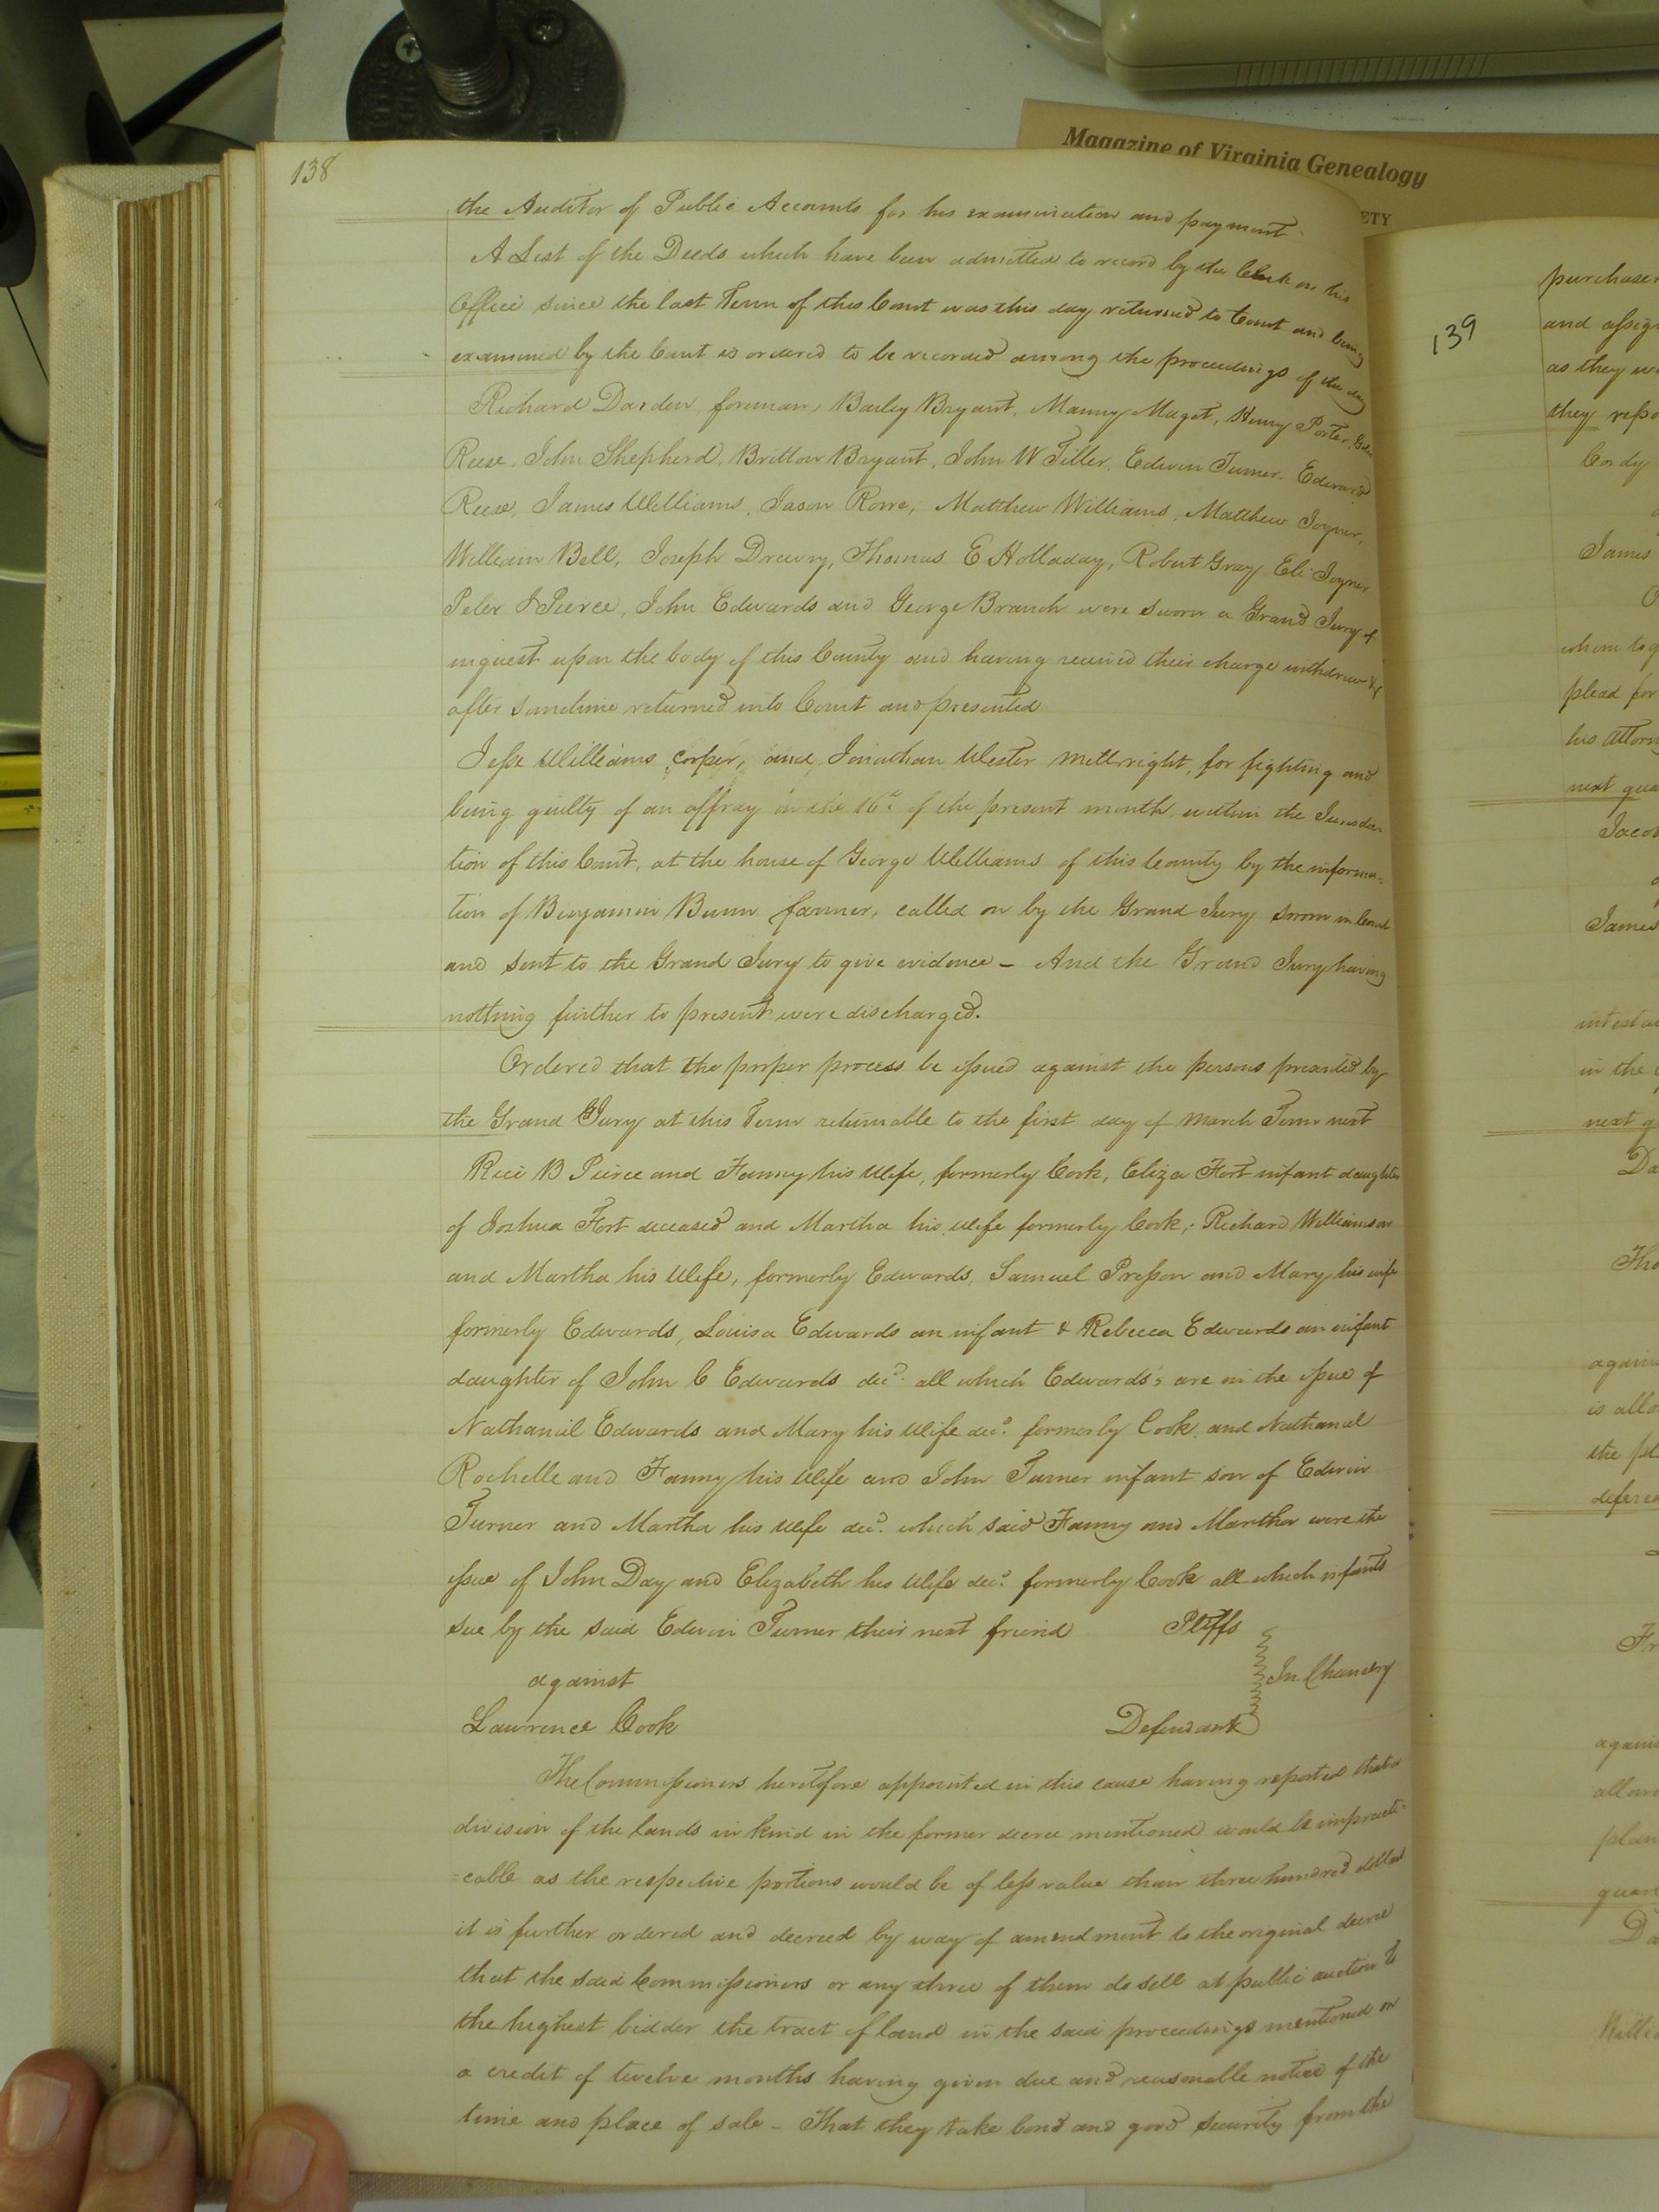 Magazine of Virginia Genealogy
ETY
138
the Auditor of Public Accounts for his examination and payment
A List of the Deeds which have been admitted to record by the Clerk in his
Office since the last Term of this Court was this day returned to Court and being
examined by the Court is ordered to be recorded among the proceedings of the day
Richard Darden foreman, Bailey Bryant, Manny Maget, Henry Porter,
Reese, John Shepherd, Britton Bryant, John W Tiller, Edwin Turner, Edward
Reese, James Williams, Jason Rowe, Matthew Williams, Matthew Joyner,
William Bell, Joseph Drewry, Thomas E Holladay, Robert Gray, Eli Joyner
Peter J Pierce, John Edwards and George Branch were sworn a Grand Jury of
inquest upon the body of this County and having received their charge withdrew &
after sometime returned into Court and presented
Jesse Williams, and Jonathan Wester millwright, for fighting and
being guilty of an affray on the 16th of the present month within the Jurisdic-
tion of this Court, at the house of George Williams of this County by the informa-
tion of Benjamin Bunn farmer, called on by the Grand Jury sworn in Court
and sent to the Grand Jury to give evidence – And the Grand Jury having
nothing further to present were discharged.
Ordered that the proper process be issued against the persons presented by
the Grand Jury at this Term returnable to the first day of March Term next
Rice B Pierce and Fanny his Wife, formerly Cook, Eliza Fort infant daughter
of Joshua Fort deceased and Martha his wife formerly Cook; Richard Williamson
and Martha his Wife, formerly Edwards, Samuel Presson and Mary his wife
formerly Edwards, Louisa Edwards an infant & Rebecca Edwards an infant
daughter of John C Edwards decd. all which Edwards's are in the issue of
Nathaniel Edwards and Mary his Wife decd. formerly Cook and Nathaniel
Rochelle and Fanny his Wife and John Turner infant son of Edwin
Turner and Martha his Wife decd. which said Fanny and Martha were the
issue of John Day and Elizabeth his Wife decd. formerly Cook all which infants
sue by the said Edwin Turner their next friend Pltffs
against In Chancery
Lawrence Cook Defendant
The Commissioners heretofore appointed in this cause having reported that a
division of the lands in kind in the former decree mentioned would be impracti-
=cable as the respective portions would be of less value than three hundred dollars
it is further ordered and decreed by way of amendment to the original decree
that the said Commissioners or any three of them do sell at public auction to
the highest bidder the tract of land in the said proceedings mentioned on
a credit of twelve months having given due and reasonable notice of the
time and place of sale – That they take bond and good security from the
139
purchaser
and assig
as they
they repo
Cordy
James
whom
plead for
his attorn
next qua
Jacob
James
intesta
in the
next q
Da
Tho
again
is allo
the pl
again
allow
plain